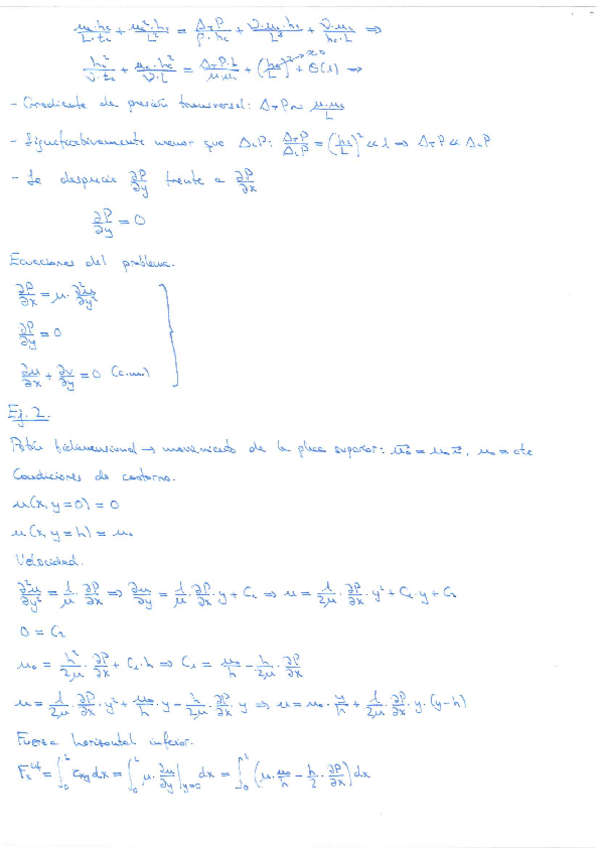 u_c·h_c/(L·t_c) + u_c²·h_c/L² = Δ_T P/(ρ·h_c) + ν·u_c·h_c/L³ + ν·u_c/(h_c·L) ⇒
h_c²/(ν·t_c) + u_c·h_c²/(ν·L) = Δ_T P·L/(μ·u_c) + (h_c/L)²→≈0 + O(1) →
- Gradiente de presión transversal: Δ_T P ~ μ·u_c/L
- Significativamente menor que Δ_L P: Δ_T P/Δ_L P = (h_c/L)² ≪ 1 ⇒ Δ_T P ≪ Δ_L P
- Se desprecia ∂P/∂y frente a ∂P/∂x
∂P/∂y = 0
Ecuaciones del problema.
∂P/∂x = μ·∂²u/∂y²
∂P/∂y = 0
∂u/∂x + ∂v/∂y = 0 (c.m.)
Ej. 2.
Patín bidimensional → movimiento de la placa superior: u₀ = u₀ x, u₀ = cte
Condiciones de contorno.
u(x, y=0) = 0
u(x, y=h) = u₀
Velocidad.
∂²u/∂y² = 1/μ · ∂P/∂x ⇒ ∂u/∂y = 1/μ · ∂P/∂x · y + C₁ ⇒ u = 1/2μ · ∂P/∂x · y² + C₁·y + C₂
0 = C₂
u₀ = h²/2μ · ∂P/∂x + C₁·h ⇒ C₁ = u₀/h - h/2μ · ∂P/∂x
u = 1/2μ · ∂P/∂x · y² + u₀/h · y - h/2μ · ∂P/∂x · y ⇒ u = u₀ · y/h + 1/2μ · ∂P/∂x · y·(y-h)
Fuerza horizontal inferior.
= ∫₀ᴸ τ_xy dx = ∫₀ᴸ μ·∂u/∂y|_{y=0} dx = ∫₀ᴸ (μ·u₀/h - h/2 · ∂P/∂x) dx